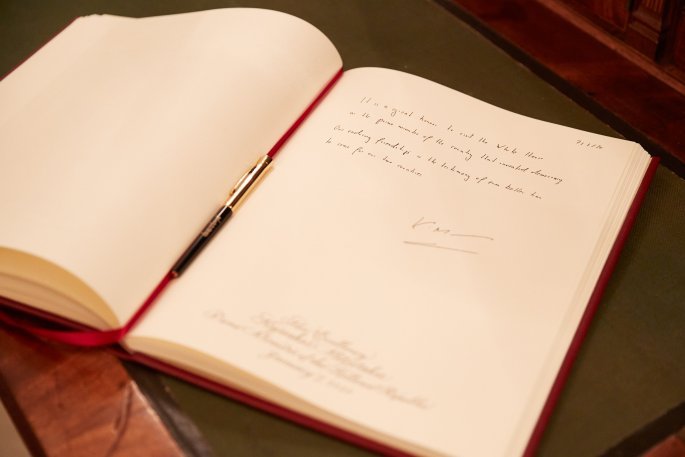 It is a great honor to visit the White House
as the prime minister of the country that invented democracy
Our enduring friendship is the testimony of even better days
to come for our two countries
His Excellency
Kyriakos Mitsotakis
Prime Minister of the Hellenic Republic
January 7, 2020